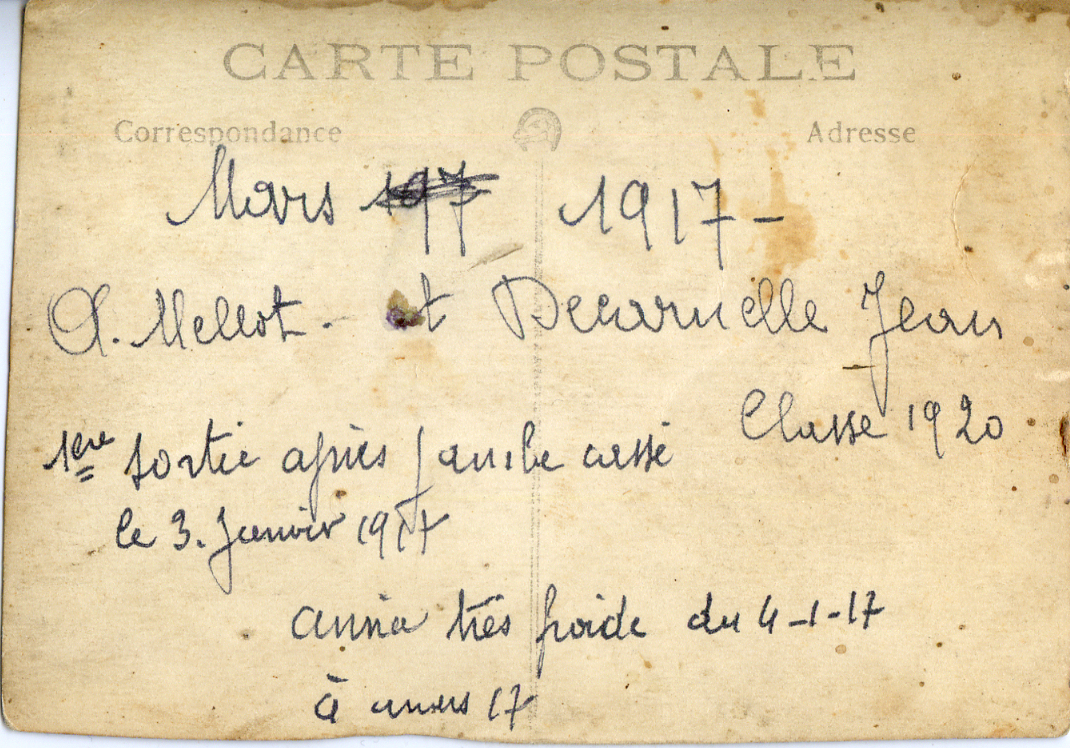 CARTE POSTALE
Correspondance Adresse
Mars 1917 -
A. Mellot - et Decarnelle Jean
Classe 1920
1ère sortie après jambe cassé
le 3. Janvier 1917
année très froide du 4-1-17
à mars 17